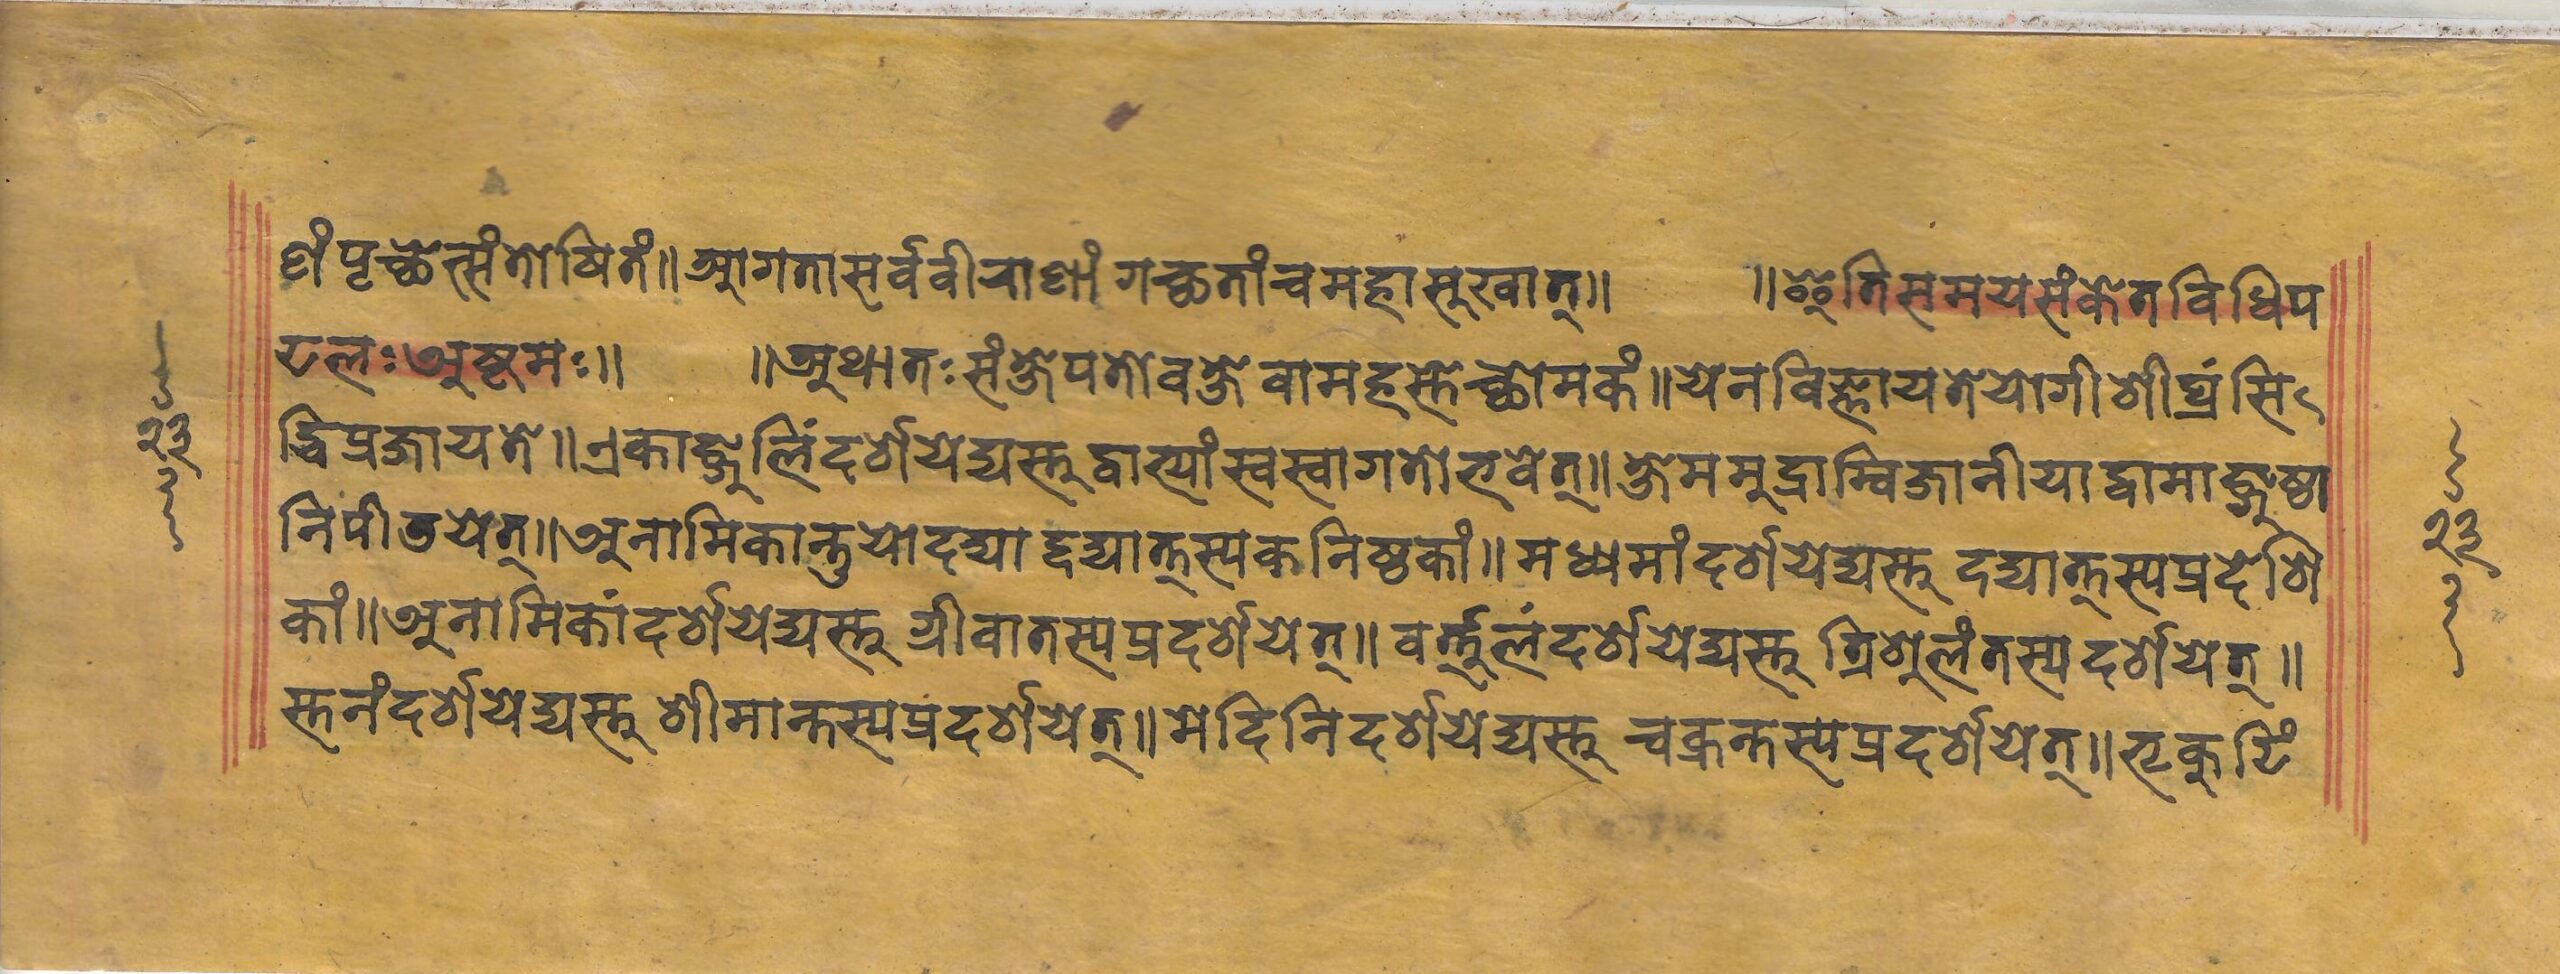 णं पृच्छेत्संतोषितं॥ आगतासर्ववीराणां गच्छतांचमहासुखात्॥ ॥इतिसमयसंकेतविधिप
टलः अष्टमः॥ ॥अथातः संक्षेपतोवक्षेवामहस्तेच्छोमकं॥ येनविज्ञायतेयोगीशीघ्रंसि
द्धिप्रजायते॥ एकाङ्गुलिंदर्शयेद्यस्तु द्वाभ्यांस्वस्वागतोभवेत्॥ क्षेममुद्राम्विजानीयाद्वामाङ्गुष्ठा
निपीडयेत्॥ अनामिकान्तुयोदद्याद्दद्यात्तस्यकनिष्ठकां॥ मध्यमांदर्शयेद्यस्तु दद्यात्तस्यप्रदेशि
कां॥ अनामिकांदर्शयेद्यस्तु ग्रीवातस्यप्रदर्शयेत्॥ वर्त्तुलंदर्शयेद्यस्तु त्रिशूलंतस्यदर्शयेत्॥
स्तनंदर्शयेद्यस्तु शीमान्तस्यप्रदर्शयेत्॥ मेदिनिदर्शयेद्यस्तु चक्रन्तस्यप्रदर्शयेत्॥ भृकुटिं
२३
२३